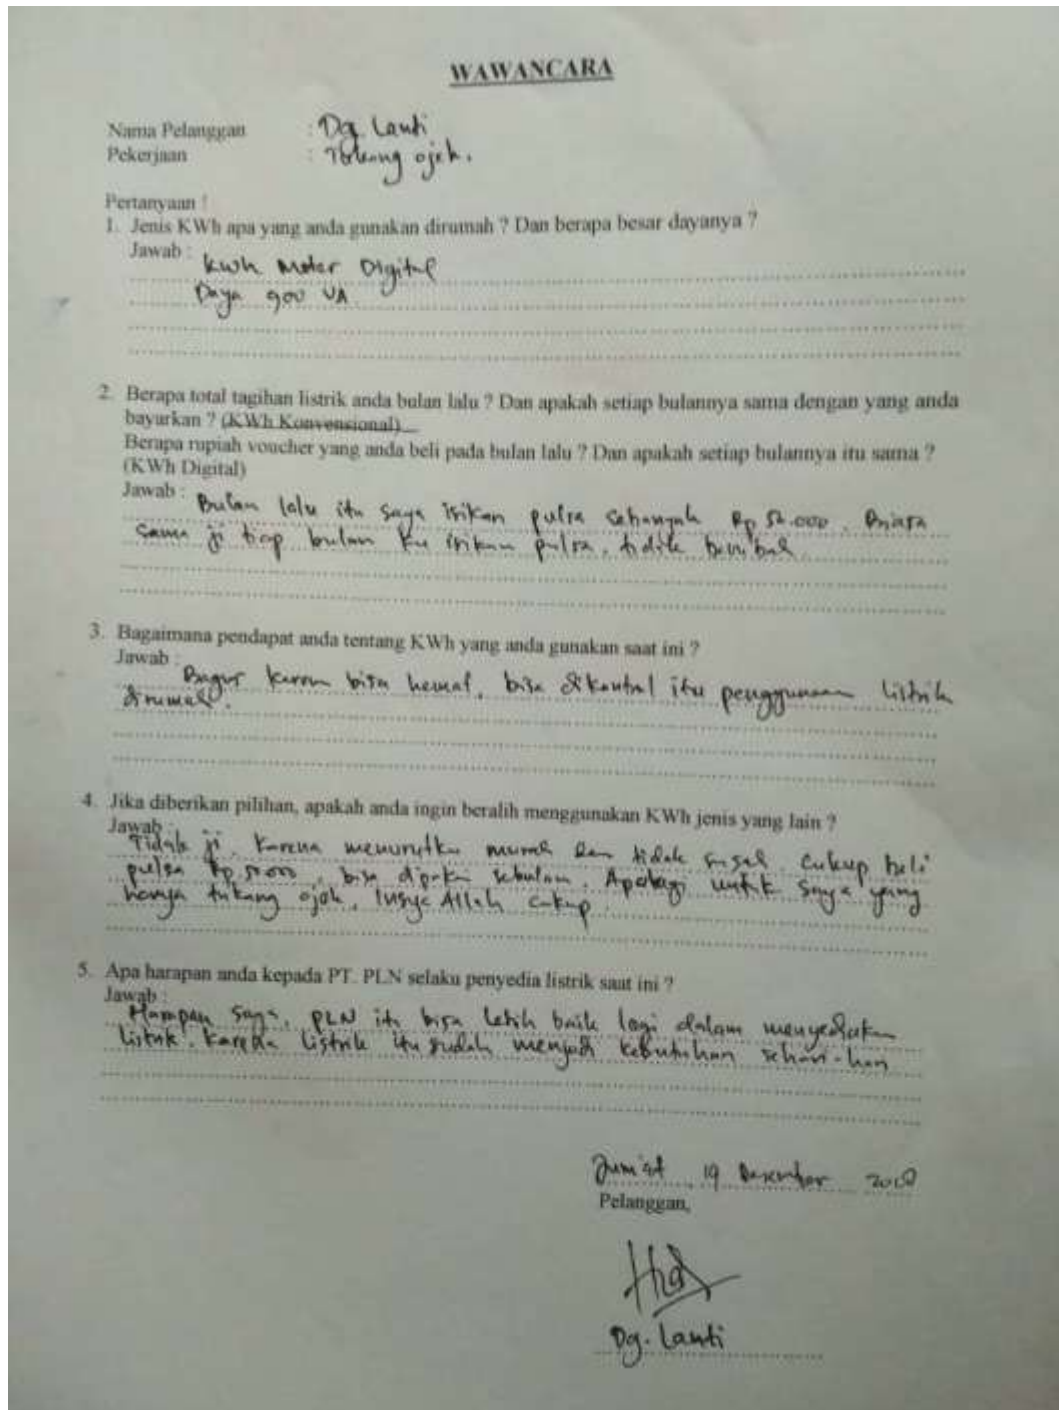 WAWANCARA
Nama Pelanggan : Dg. Lanti
Pekerjaan : Tukang ojek.
Pertanyaan !
1. Jenis KWh apa yang anda gunakan dirumah ? Dan berapa besar dayanya ?
Jawab :
Kwh Meter Digital
Daya 900 VA
2. Berapa total tagihan listrik anda bulan lalu ? Dan apakah setiap bulannya sama dengan yang anda
bayarkan ? (KWh Konvensional)
Berapa rupiah voucher yang anda beli pada bulan lalu ? Dan apakah setiap bulannya itu sama ?
(KWh Digital)
Jawab : Bulan lalu itu saya isikan pulsa sebanyak Rp 50.000.
sama ji tiap bulan ku isikan pulsa, tidak
3. Bagaimana pendapat anda tentang KWh yang anda gunakan saat ini ?
Jawab :
Bagus karena bisa hemat, bisa dikontrol itu penggunaan listrik
dirumah.
4. Jika diberikan pilihan, apakah anda ingin beralih menggunakan KWh jenis yang lain ?
Jawab :
Tidak ji, Karena menurutku murah dan tidak cukup beli
pulsa Rp 50.000, bisa dipakai sebulan. Apalagi untuk saya yang
hanya tukang ojek, Insya Allah cukup.
5. Apa harapan anda kepada PT. PLN selaku penyedia listrik saat ini ?
Jawab :
Harapan saya, PLN itu bisa lebih baik lagi dalam menyediakan
listrik. Karena listrik itu sudah menjadi kebutuhan sehari-hari
Jum'at, 19 Desember
Pelanggan,
Dg. Lanti